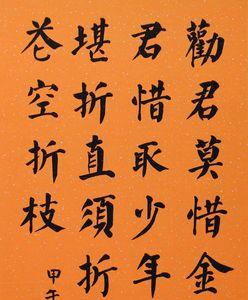 勸君莫惜金
君惜取少年
堪折直須折
花空折枝
甲午